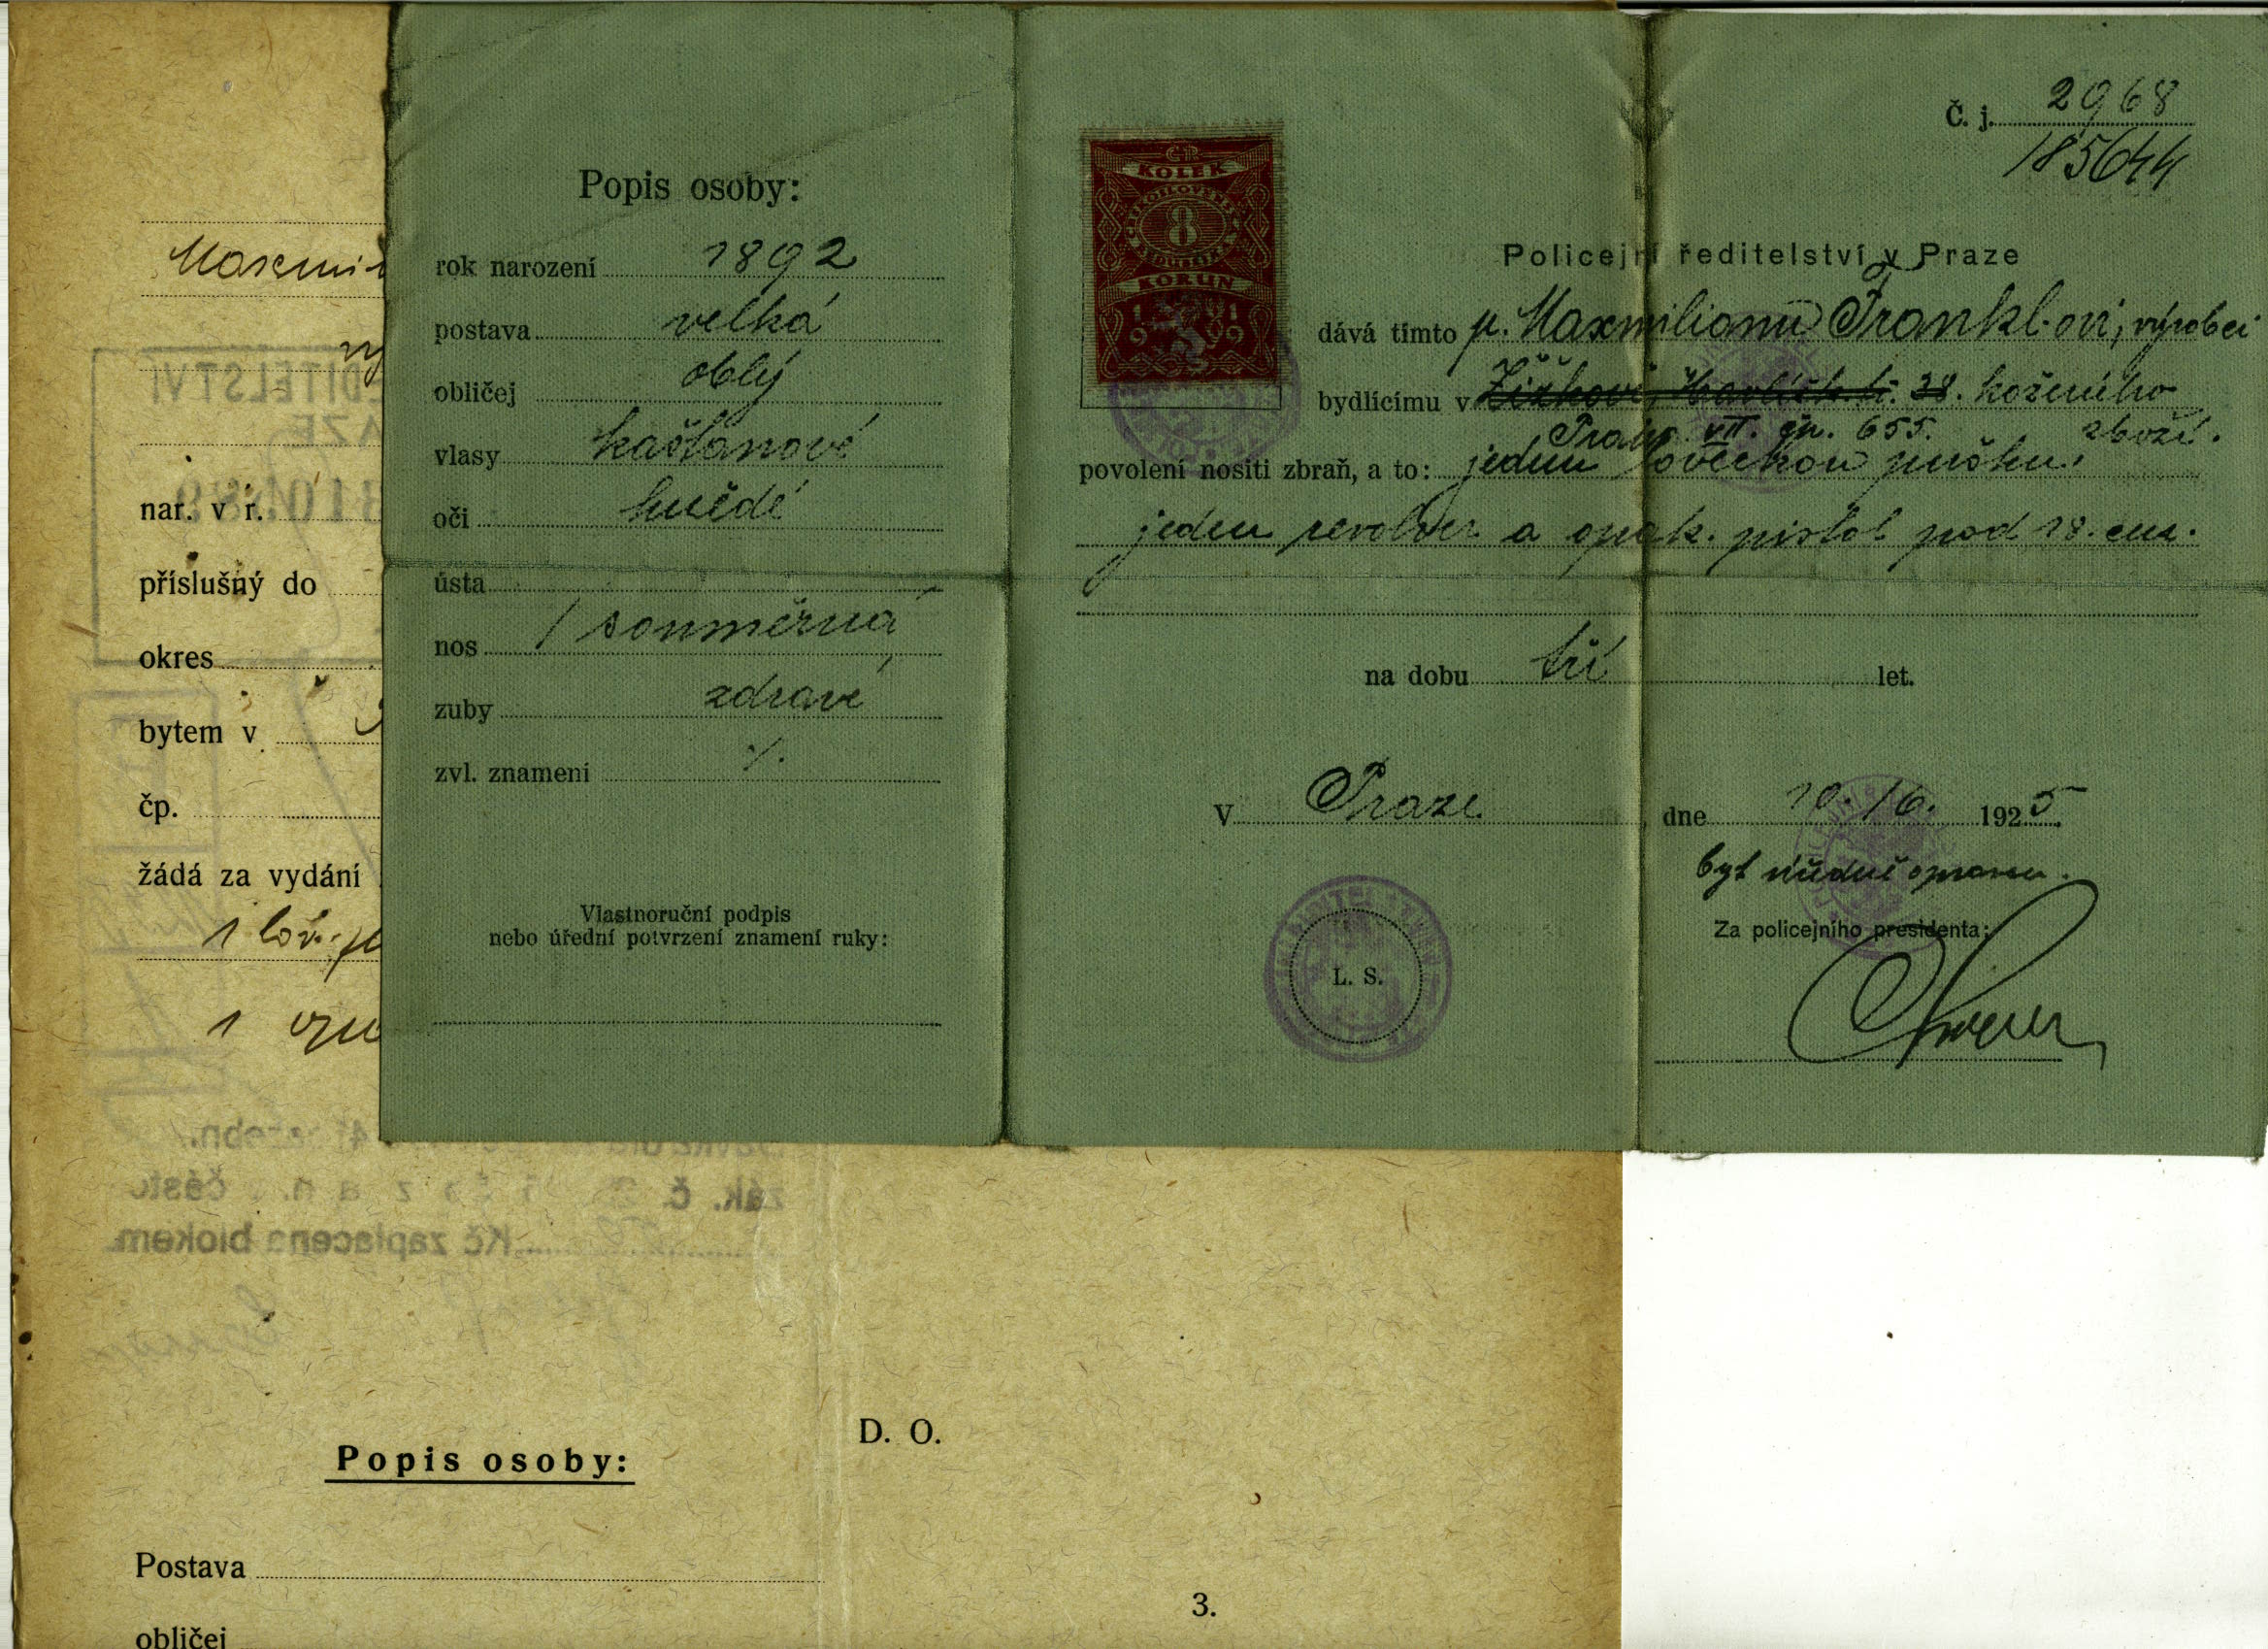 Popis osoby:
rok narození 1892
postava velká
obličej oblý
vlasy kaštanové
oči hnědé
ústa
nos / souměrná
zuby zdravé
zvl. znamení ./.
Vlastnoruční podpis
nebo úřední potvrzení znamení ruky:
KOLEK
8
KORUN
1919
Č. j. 2968
185644
Policejní ředitelství v Praze
dává tímto p. Maxmilianu Frankl-ovi, výrobci
bydlícímu v Žižkově, Havlíčk. tř. 28. koženého
Praha VII. čp. 655. zboží.
povolení nositi zbraň, a to: jednu loveckou pušku,
jeden revolver a opak. pistol pod 18. cm.
na dobu tři let.
V Praze dne 10./6. 1925.
byt úředně opraven.
Za policejního presidenta:
L. S.
nar. v r.
příslušný do
okres
bytem v
čp.
žádá za vydání
1 lov. p
1
zák. č.
Kč zaplacena blokem
Popis osoby:
D. O.
Postava
obličej
3.